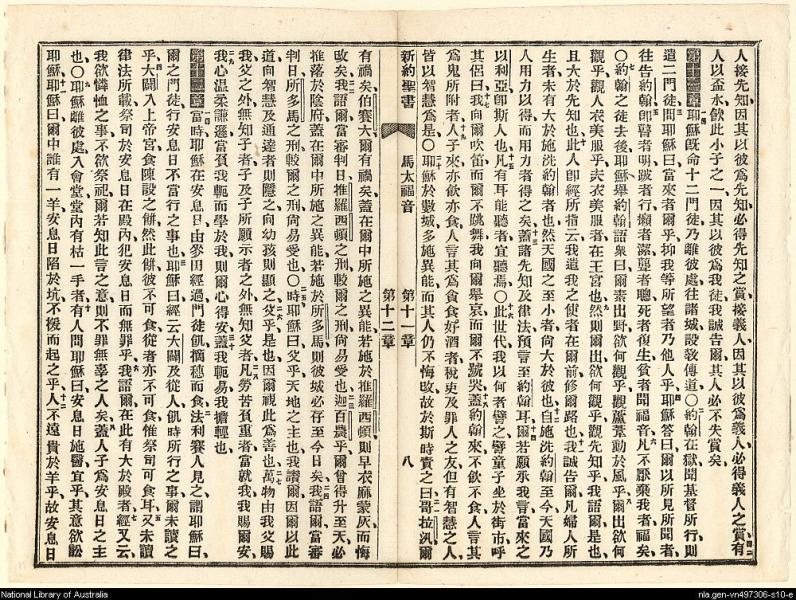 人接先知因其以彼爲先知必得先知之賞接義人因其以彼爲義人必得義人之賞有
人以盃水飲此小子之一因其以彼爲我徒我誠告爾其人必不失賞矣
第十一章 耶穌旣命十二門徒乃離彼處往諸城設敎傳道○約翰在獄聞基督所行則
遣二門徒問耶穌曰當來者爾乎抑我等所望者乃他人乎耶穌答曰爾以所見所聞者
往告約翰卽瞽者明跛者行癩者潔聾者聽死者復生貧者聞福音凡不厭棄我者福矣
○約翰之徒去後耶穌舉約翰語衆曰爾素出野欲何觀乎觀蘆葦動於風乎爾出欲何
觀乎觀人衣美服乎夫衣美服者在王宮也然則爾出欲何觀乎觀先知乎我語爾是也
且大於先知也此人卽經所指云我遣我之使者在爾前修爾路也我誠告爾凡婦人所
生者未有大於施洗約翰者也然天國之至小者尚大於彼也自施洗約翰至今天國乃
人用力以得而用力者得之矣蓋諸先知及律法預言至約翰耳爾若願承我言當來之
以利亞卽斯人也凡有耳能聽者宜聽焉○此世代我以何者譬之譬童子坐於街市呼
其侶曰我向爾吹笛而爾不跳舞我向爾舉哀而爾不號哭蓋約翰來不飲不食人言其
爲鬼所附者人子來亦飲亦食人言其爲貪食好酒者稅吏及罪人之友但有智慧之人
皆以智慧爲是○耶穌於數城多施異能而其人仍不悔改故於斯時責之曰哥拉汛爾
新約聖書 馬太福音 第十一章 八
第十二章
有禍矣伯賽大爾有禍矣蓋在爾中所施之異能若施於推羅西頓則早衣麻蒙灰而悔
改矣我語爾當審判日推羅西頓之刑較爾之刑尚易受也迦百農乎爾曾得升至天必
推落於陰府蓋在爾中所施之異能若施於所多馬則彼城必存至今日矣我語爾當審
判日所多馬之刑較爾之刑尚易受也○時耶穌曰父乎天地之主也我讚爾因爾以此
道向智慧及通達者則隱之向幼孩則顯之父乎是也因爾視此爲善也萬物由我父賜
我父之外無知子者子及子所願示者之外無知父者凡勞苦負重者當就我我賜爾安
我心温柔謙遜當負我軛而學於我則爾心得安蓋我軛易我擔輕也
第十二章 當時耶穌在安息日由麥田經過門徒飢摘穗而食法利賽人見之謂耶穌曰
爾之門徒行安息日不當行之事也耶穌曰經云大闢及從人飢時所行之事爾未讀之
乎大闢入上帝宮食陳設之餅然此餅彼不可食從者亦不可食惟祭司可食耳又未讀
律法所載祭司於安息日在殿內犯安息日而無罪乎我語爾在此有大於殿者經又云
我欲憐恤之事不欲祭祀爾若知此言之意則不罪無辜之人矣蓋人子爲安息日之主
也○耶穌離彼處入會堂堂內有枯一手者有人問耶穌曰安息日施醫宜乎其意欲訟
耶穌耶穌曰爾中誰有一羊安息日陷於坑不援而起之乎人不遠貴於羊乎故安息日
National Library of Australia
nla.gen-vn497306-s10-e